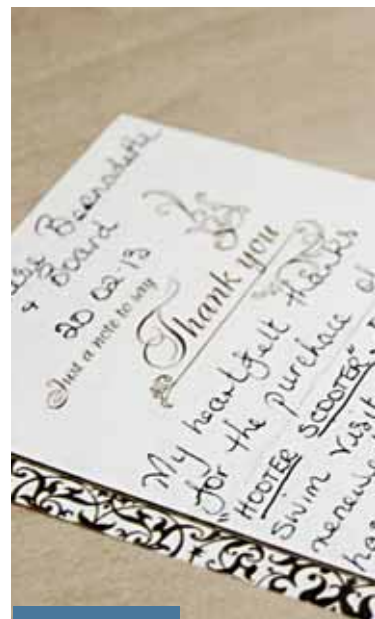 Bernadette
& Board
20-02-13
Just a note to say
Thank you
My heartfelt thanks
for the purchase of
"HOOTER SCOOTER"
swim visit